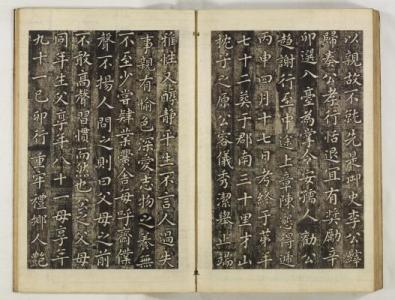 以親故不就先是御史李公
歸奏公孝行恬退宜有奬勵辛
卯選入臺為掌令安
趙謝行至中途上章陳
丙申四月十七日考終于第年
七十二葬于郡南三十里才山
枕子之原公容儀秀潔舉止端
雅性又靜平生不言人過失
事親有愉色深愛志物之養無
不至少嘗肄業黌舍母呼
聲不揚人問之則曰父母之前
不敢高聲習慣而然也公之父母
同年生父享年八十一母享年
九十一己卯行重牢禮鄉人艶